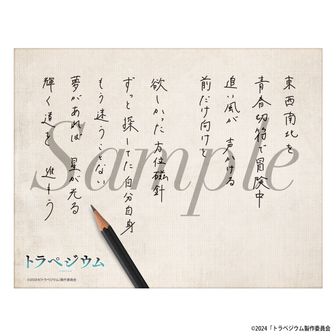 東西南北を
青春切符で冒険中
追い風が 声かける
前だけ向けと
欲しかった方位磁針
ずっと探してた自分自身
もう迷うことない
夢があれば 星が光る
輝く道を 進もう
Sample
トラペジウム
©2024「トラペジウム」製作委員会
©2024「トラペジウム」製作委員会